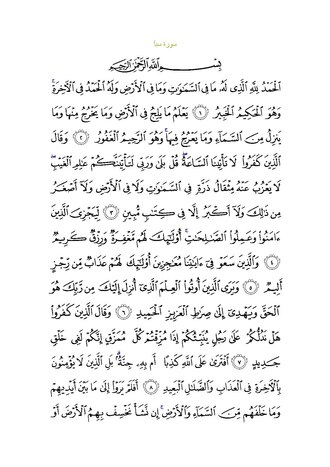 سورة سبإ
بِسْمِ اللَّهِ الرَّحْمَٰنِ الرَّحِيمِ
الْحَمْدُ لِلَّهِ الَّذِي لَهُ مَا فِي السَّمَاوَاتِ وَمَا فِي الْأَرْضِ وَلَهُ الْحَمْدُ فِي الْآخِرَةِ
وَهُوَ الْحَكِيمُ الْخَبِيرُ ١ يَعْلَمُ مَا يَلِجُ فِي الْأَرْضِ وَمَا يَخْرُجُ مِنْهَا وَمَا
يَنزِلُ مِنَ السَّمَاءِ وَمَا يَعْرُجُ فِيهَا وَهُوَ الرَّحِيمُ الْغَفُورُ ٢ وَقَالَ
الَّذِينَ كَفَرُوا لَا تَأْتِينَا السَّاعَةُ قُلْ بَلَىٰ وَرَبِّي لَتَأْتِيَنَّكُمْ عَالِمِ الْغَيْبِ
لَا يَعْزُبُ عَنْهُ مِثْقَالُ ذَرَّةٍ فِي السَّمَاوَاتِ وَلَا فِي الْأَرْضِ وَلَا أَصْغَرُ
مِن ذَٰلِكَ وَلَا أَكْبَرُ إِلَّا فِي كِتَابٍ مُّبِينٍ ٣ لِّيَجْزِيَ الَّذِينَ
ءَامَنُوا وَعَمِلُوا الصَّالِحَاتِ أُولَٰئِكَ لَهُم مَّغْفِرَةٌ وَرِزْقٌ كَرِيمٌ
٤ وَالَّذِينَ سَعَوْ فِي ءَايَاتِنَا مُعَاجِزِينَ أُولَٰئِكَ لَهُمْ عَذَابٌ مِّن رِّجْزٍ
أَلِيمٌ ٥ وَيَرَى الَّذِينَ أُوتُوا الْعِلْمَ الَّذِي أُنزِلَ إِلَيْكَ مِن رَّبِّكَ هُوَ
الْحَقَّ وَيَهْدِي إِلَىٰ صِرَاطِ الْعَزِيزِ الْحَمِيدِ ٦ وَقَالَ الَّذِينَ كَفَرُوا
هَلْ نَدُلُّكُمْ عَلَىٰ رَجُلٍ يُنَبِّئُكُمْ إِذَا مُزِّقْتُمْ كُلَّ مُمَزَّقٍ إِنَّكُمْ لَفِي خَلْقٍ
جَدِيدٍ ٧ أَفْتَرَىٰ عَلَى اللَّهِ كَذِبًا أَم بِهِ جِنَّةٌ بَلِ الَّذِينَ لَا يُؤْمِنُونَ
بِالْآخِرَةِ فِي الْعَذَابِ وَالضَّلَالِ الْبَعِيدِ ٨ أَفَلَمْ يَرَوْا إِلَىٰ مَا بَيْنَ أَيْدِيهِمْ
وَمَا خَلْفَهُم مِّنَ السَّمَاءِ وَالْأَرْضِ إِن نَّشَأْ نَخْسِفْ بِهِمُ الْأَرْضَ أَوْ